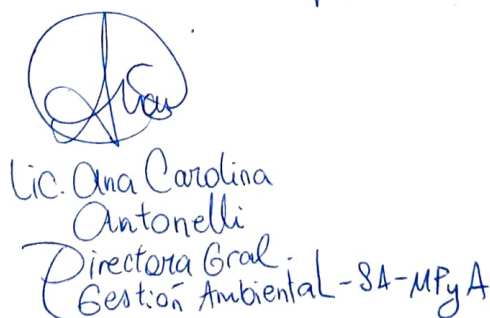 Lic. Ana Carolina
Antonelli
Directora Gral.
Gestión Ambiental - SA - MPyA